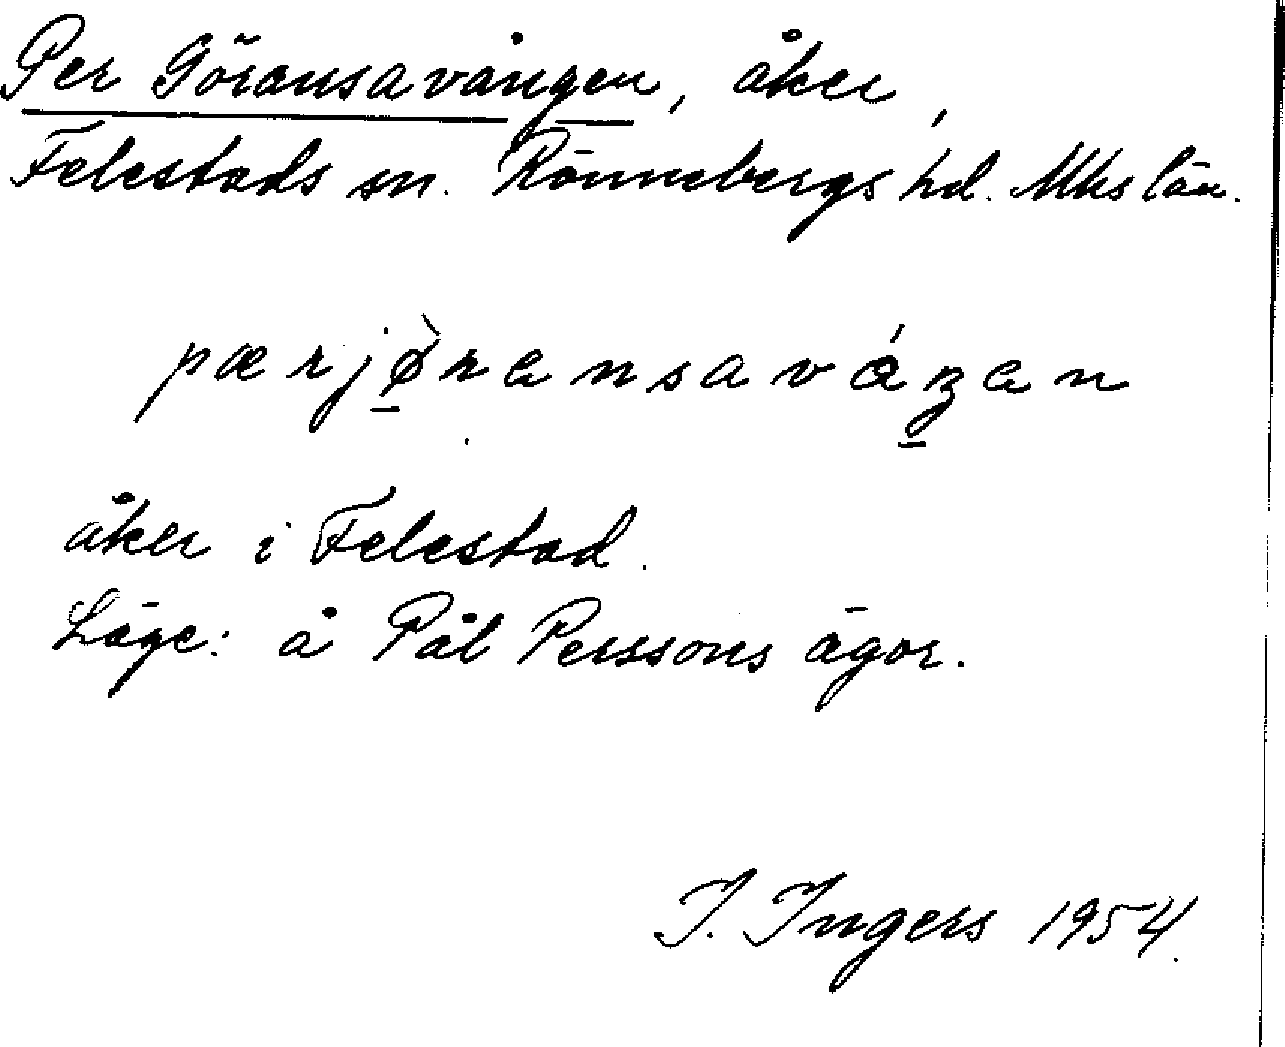 Per Göransavången, åker,
Felestads sn. Rönnebergs hd. Mhs län.
pærjø̀ransaváŋan
åker i Felestad.
Läge: å Pål Perssons ägor.
I. Ingers 1954.